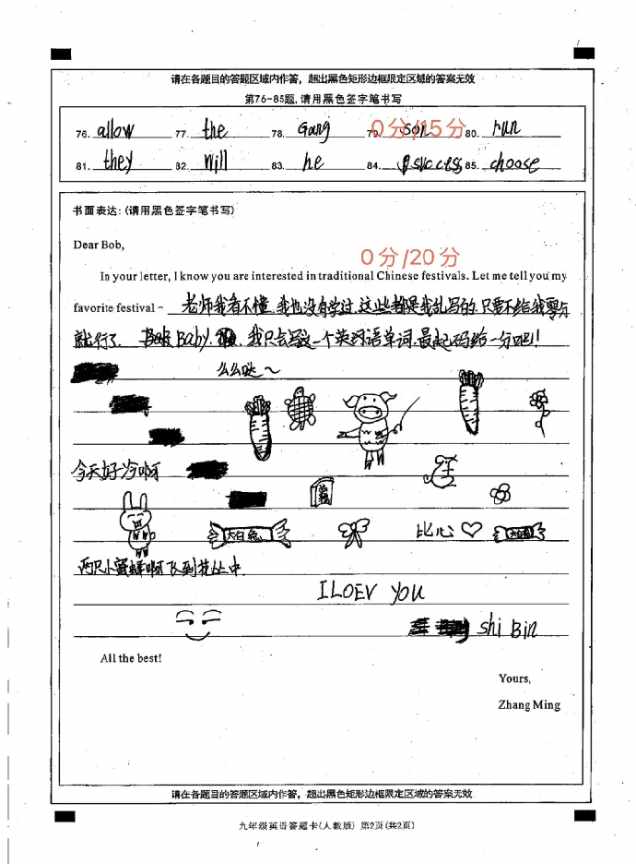 请在各题目的答题区域内作答，超出黑色矩形边框限定区域的答案无效
第76-85题，请用黑色签字笔书写
76. allow 77. the 78. Gang 79. son 80. run
0分/15分
81. they 82. will 83. he 84. 85. choose
书面表达：(请用黑色签字笔书写)
Dear Bob,
0分/20分
In your letter, I know you are interested in traditional Chinese festivals. Let me tell you my
favorite festival - 老师我看不懂，我也没有学过，这些都是我乱写的，只要不给我零分
就行了. Baby. 我只会写这一个英语单词，最起码给一分吧！
么么哒~
今天好冷啊
大白兔 比心♡ 大白兔
两只小蜜蜂啊飞到花丛中
I LOEV YOU
shi Bin
All the best!
Yours,
Zhang Ming
请在各题目的答题区域内作答，超出黑色矩形边框限定区域的答案无效
九年级英语答题卡(人教版) 第2页(共2页)